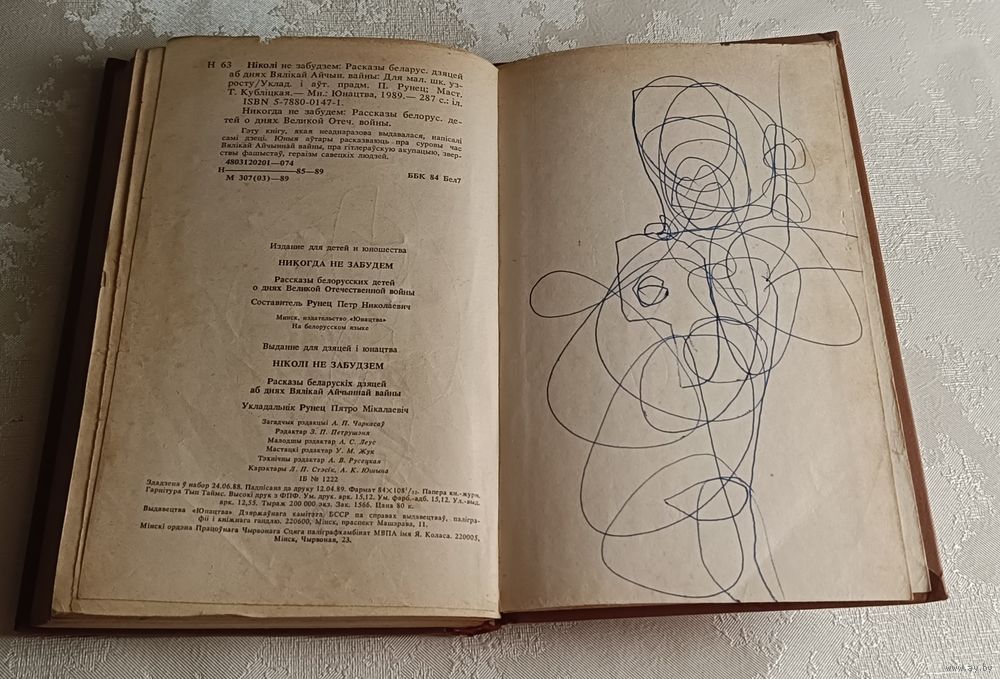 Н 63 Ніколі не забудзем: Расказы беларус. дзяцей
аб днях Вялікай Айчын. вайны: Для мал. шк. уз-
росту/Уклад. і аўт. прадм. П. Рунец; Маст.
Т. Кубліцкая.— Мн.: Юнацтва, 1989.— 287 с.: іл.
ISBN 5-7880-0147-1.
Никогда не забудем: Рассказы белорус. де-
тей о днях Великой Отеч. войны.
Гэту кнігу, якая неаднаразова выдавалася, напісалі
самі дзеці. Юныя аўтары расказваюць пра суровы час
Вялікай Айчыннай вайны, пра гітлераўскую акупацыю, звер-
ствы фашыстаў, гераізм савецкіх людзей.
4803120201—074
Н 85—89
М 307(03)—89
ББК 84 Бел7
Издание для детей и юношества
НИКОГДА НЕ ЗАБУДЕМ
Рассказы белорусских детей
о днях Великой Отечественной войны
Составитель Рунец Петр Николаевич
Минск, издательство «Юнацтва»
На белорусском языке
Выданне для дзяцей і юнацтва
НІКОЛІ НЕ ЗАБУДЗЕМ
Расказы беларускіх дзяцей
аб днях Вялікай Айчыннай вайны
Укладальнік Рунец Пятро Мікалаевіч
Загадчык рэдакцыі А. П. Чаркасаў
Рэдактар З. П. Петрушэня
Малодшы рэдактар А. С. Леус
Мастацкі рэдактар У. М. Жук
Тэхнічны рэдактар А. В. Русецкая
Карэктары Л. П. Стэсік, А. К. Юшына
ІБ № 1222
Здадзена ў набор 24.06.88. Падпісана да друку 12.04.89. Фармат 84×108¹/₃₂. Папера кн.-журн.
Гарнітура Тып Таймс. Высокі друк з ФПФ. Ум. друк. арк. 15,12. Ум. фарб.-адб. 15,12. Ул.-выд.
арк. 12,55. Тыраж 200 000 экз. Зак. 1566. Цана 80 к.
Выдавецтва «Юнацтва» Дзяржаўнага камітэта БССР па справах выдавецтваў, палігра-
фіі і кніжнага гандлю. 220600, Мінск, праспект Машэрава, 11.
Мінскі ордэна Працоўнага Чырвонага Сцяга паліграфкамбінат МВПА імя Я. Коласа. 220005,
Мінск, Чырвоная, 23.
www.ay.by